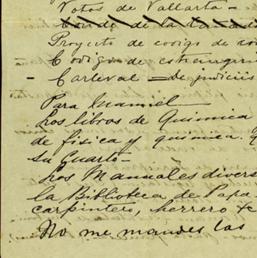 Votos de Vallarta -
Proyecto de codigo de co
Codigo de extrangeri
- Carteval - De judiciis
Para Manuel -
Los libros de Quimica
de fisica y quimica q
su Cuarto -
Los Manuales divers
la Biblioteca de Papa -
carpintero, herrero &c
No me mandes las